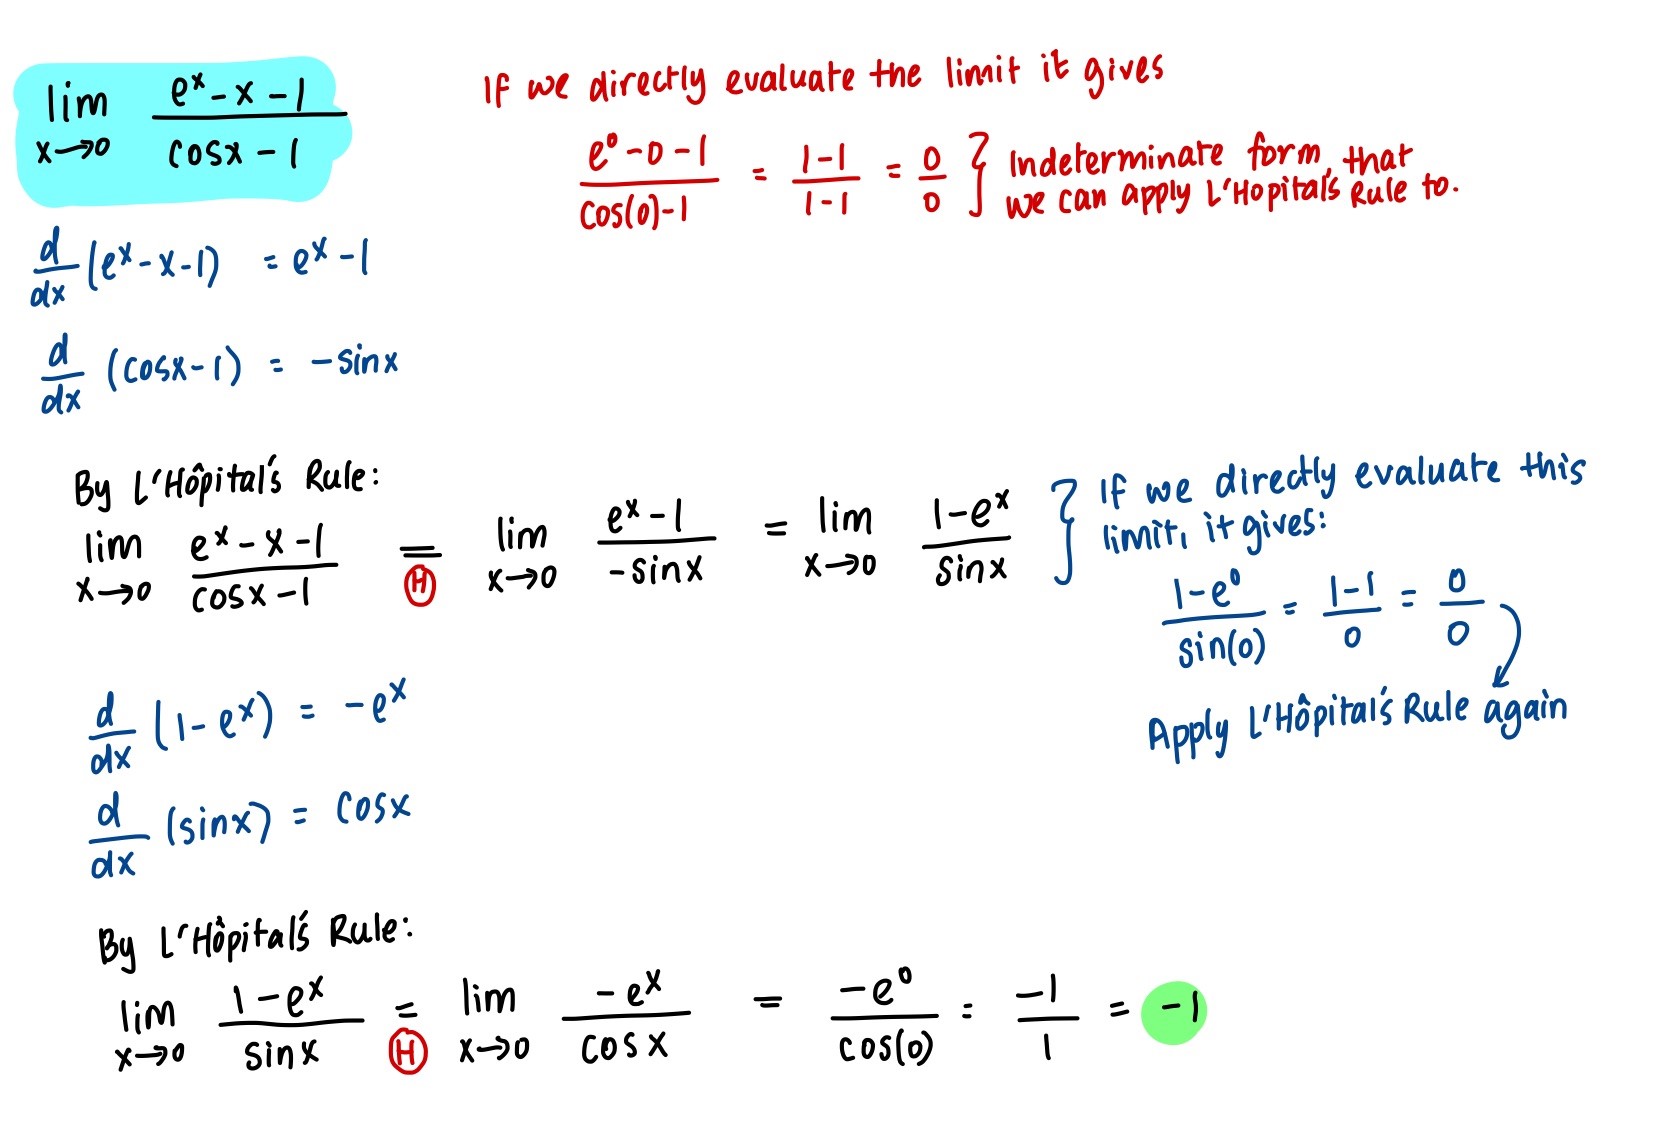 lim x→0 (e^x - x - 1)/(cosx - 1)
If we directly evaluate the limit it gives
(e^0 - 0 - 1)/(cos(0) - 1) = (1-1)/(1-1) = 0/0 } Indeterminate form, that
we can apply L'Hopital's Rule to.
d/dx (e^x - x - 1) = e^x - 1
d/dx (cosx - 1) = -sinx
By L'Hôpital's Rule:
lim x→0 (e^x - x - 1)/(cosx - 1) = Ⓗ lim x→0 (e^x - 1)/(-sinx) = lim x→0 (1 - e^x)/(sinx) } If we directly evaluate this
limit, it gives:
(1 - e^0)/(sin(0)) = (1-1)/0 = 0/0
Apply L'Hôpital's Rule again
d/dx (1 - e^x) = -e^x
d/dx (sinx) = cosx
By L'Hôpital's Rule:
lim x→0 (1 - e^x)/(sinx) = Ⓗ lim x→0 (-e^x)/(cosx) = (-e^0)/(cos(0)) = -1/1 = -1